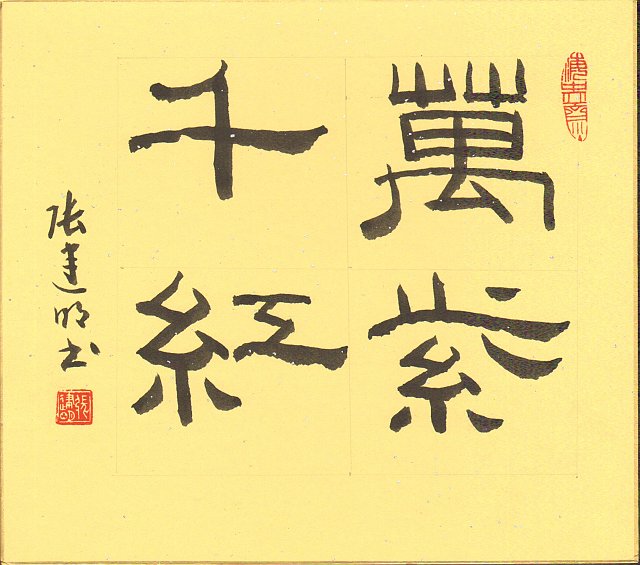 萬紫
千紅
张建明书